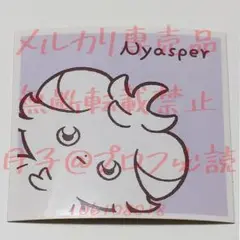 Nyasper
メルカリ専売品
無断転載禁止
月子@プロフ必読